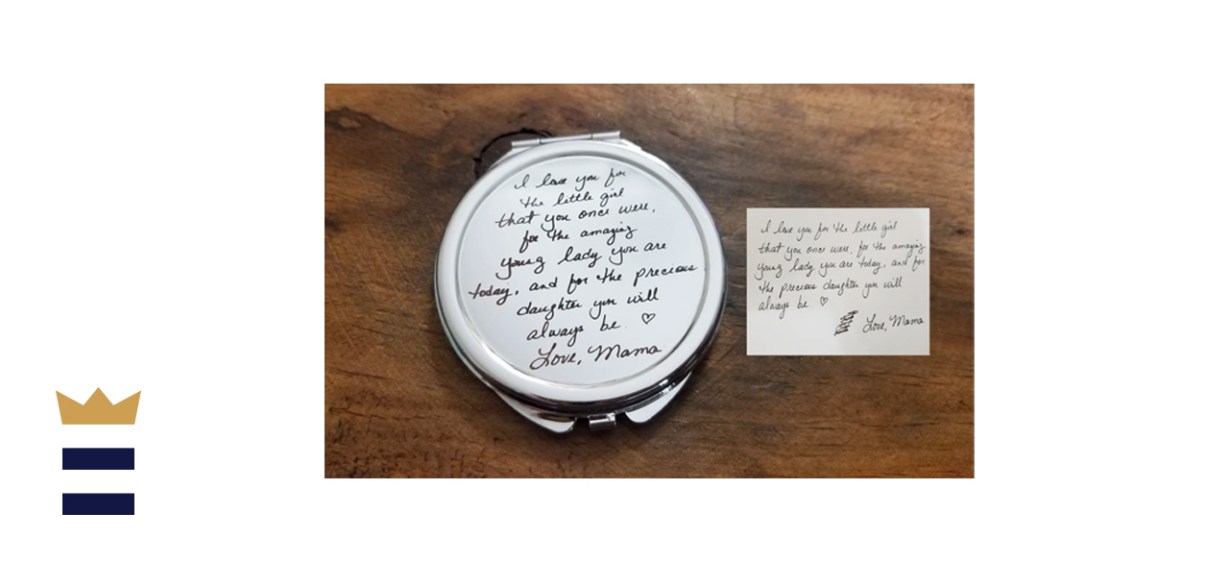 I love you for
the little girl
that you once were,
for the amazing
young lady you are
today, and for the precious
daughter you will
always be. ♡
Love, Mama
I love you for the little girl
that you once were, for the amazing
young lady you are today, and for
the precious daughter you will
always be ♡
Love, Mama